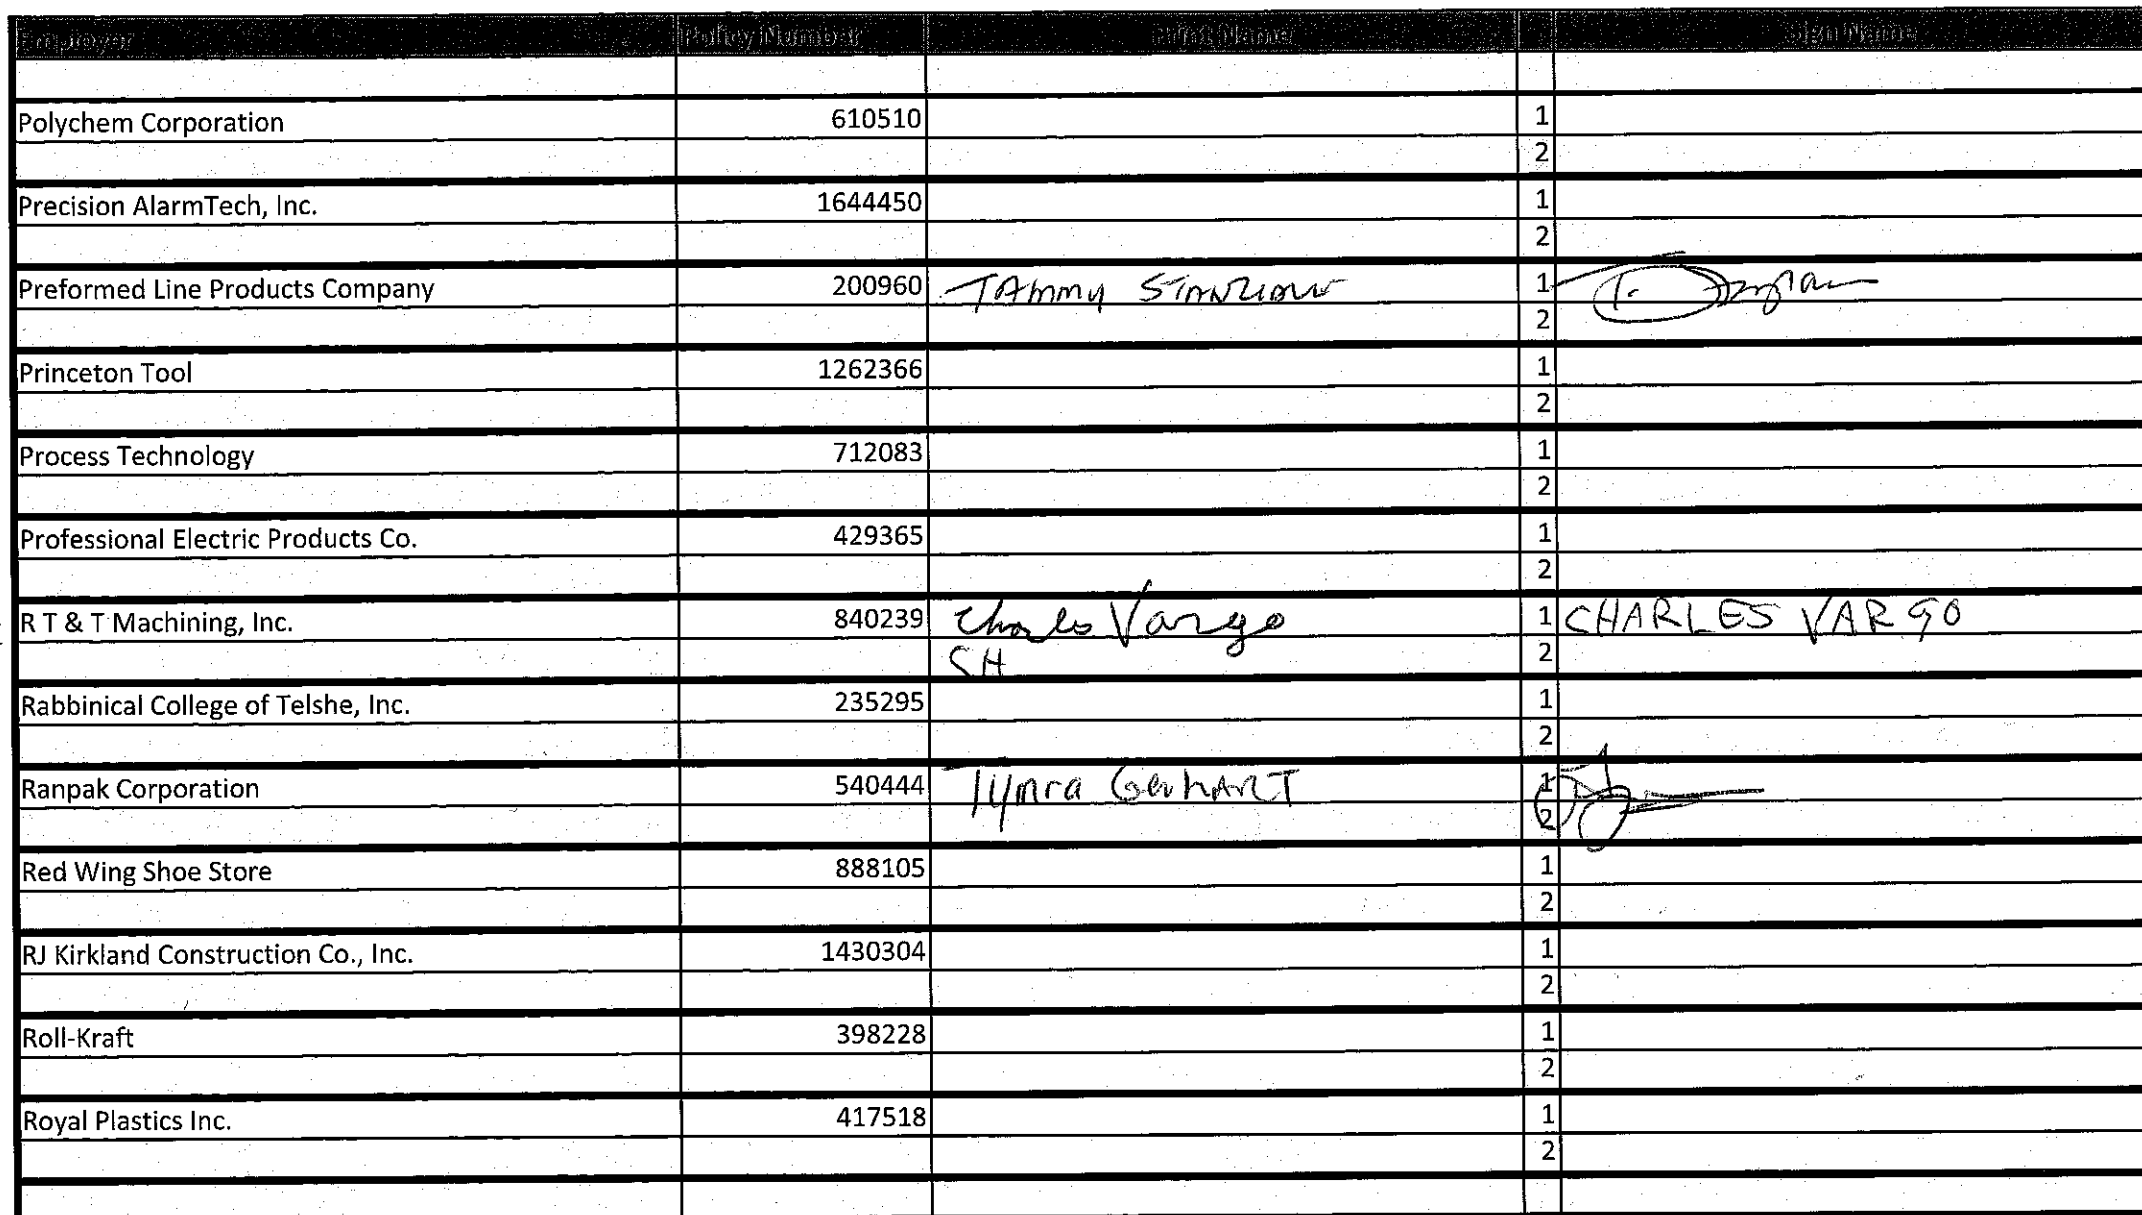 Employer Policy Number Print Name Sign Name
Polychem Corporation 610510 1
2
Precision AlarmTech, Inc. 1644450 1
2
Preformed Line Products Company 200960 TAmmy 1 T.
2
Princeton Tool 1262366 1
2
Process Technology 712083 1
2
Professional Electric Products Co. 429365 1
2
R T & T Machining, Inc. 840239 Charles Vargo 1 CHARLES VARGO
CH 2
Rabbinical College of Telshe, Inc. 235295 1
2
Ranpak Corporation 540444 GerhART 1
2
Red Wing Shoe Store 888105 1
2
RJ Kirkland Construction Co., Inc. 1430304 1
2
Roll-Kraft 398228 1
2
Royal Plastics Inc. 417518 1
2